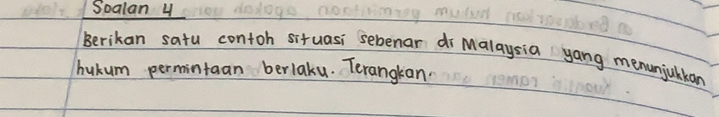 Soalan 4
Berikan satu contoh situasi sebenar di Malaysia yang menunjukkan
hukum permintaan berlaku. Terangkan.